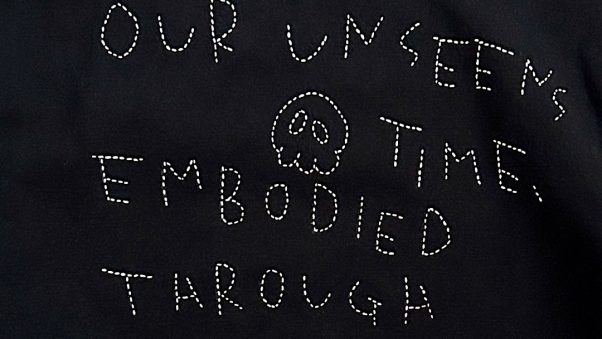 OUR UNSEENS
TIME,
EMBODIED
THROUGH